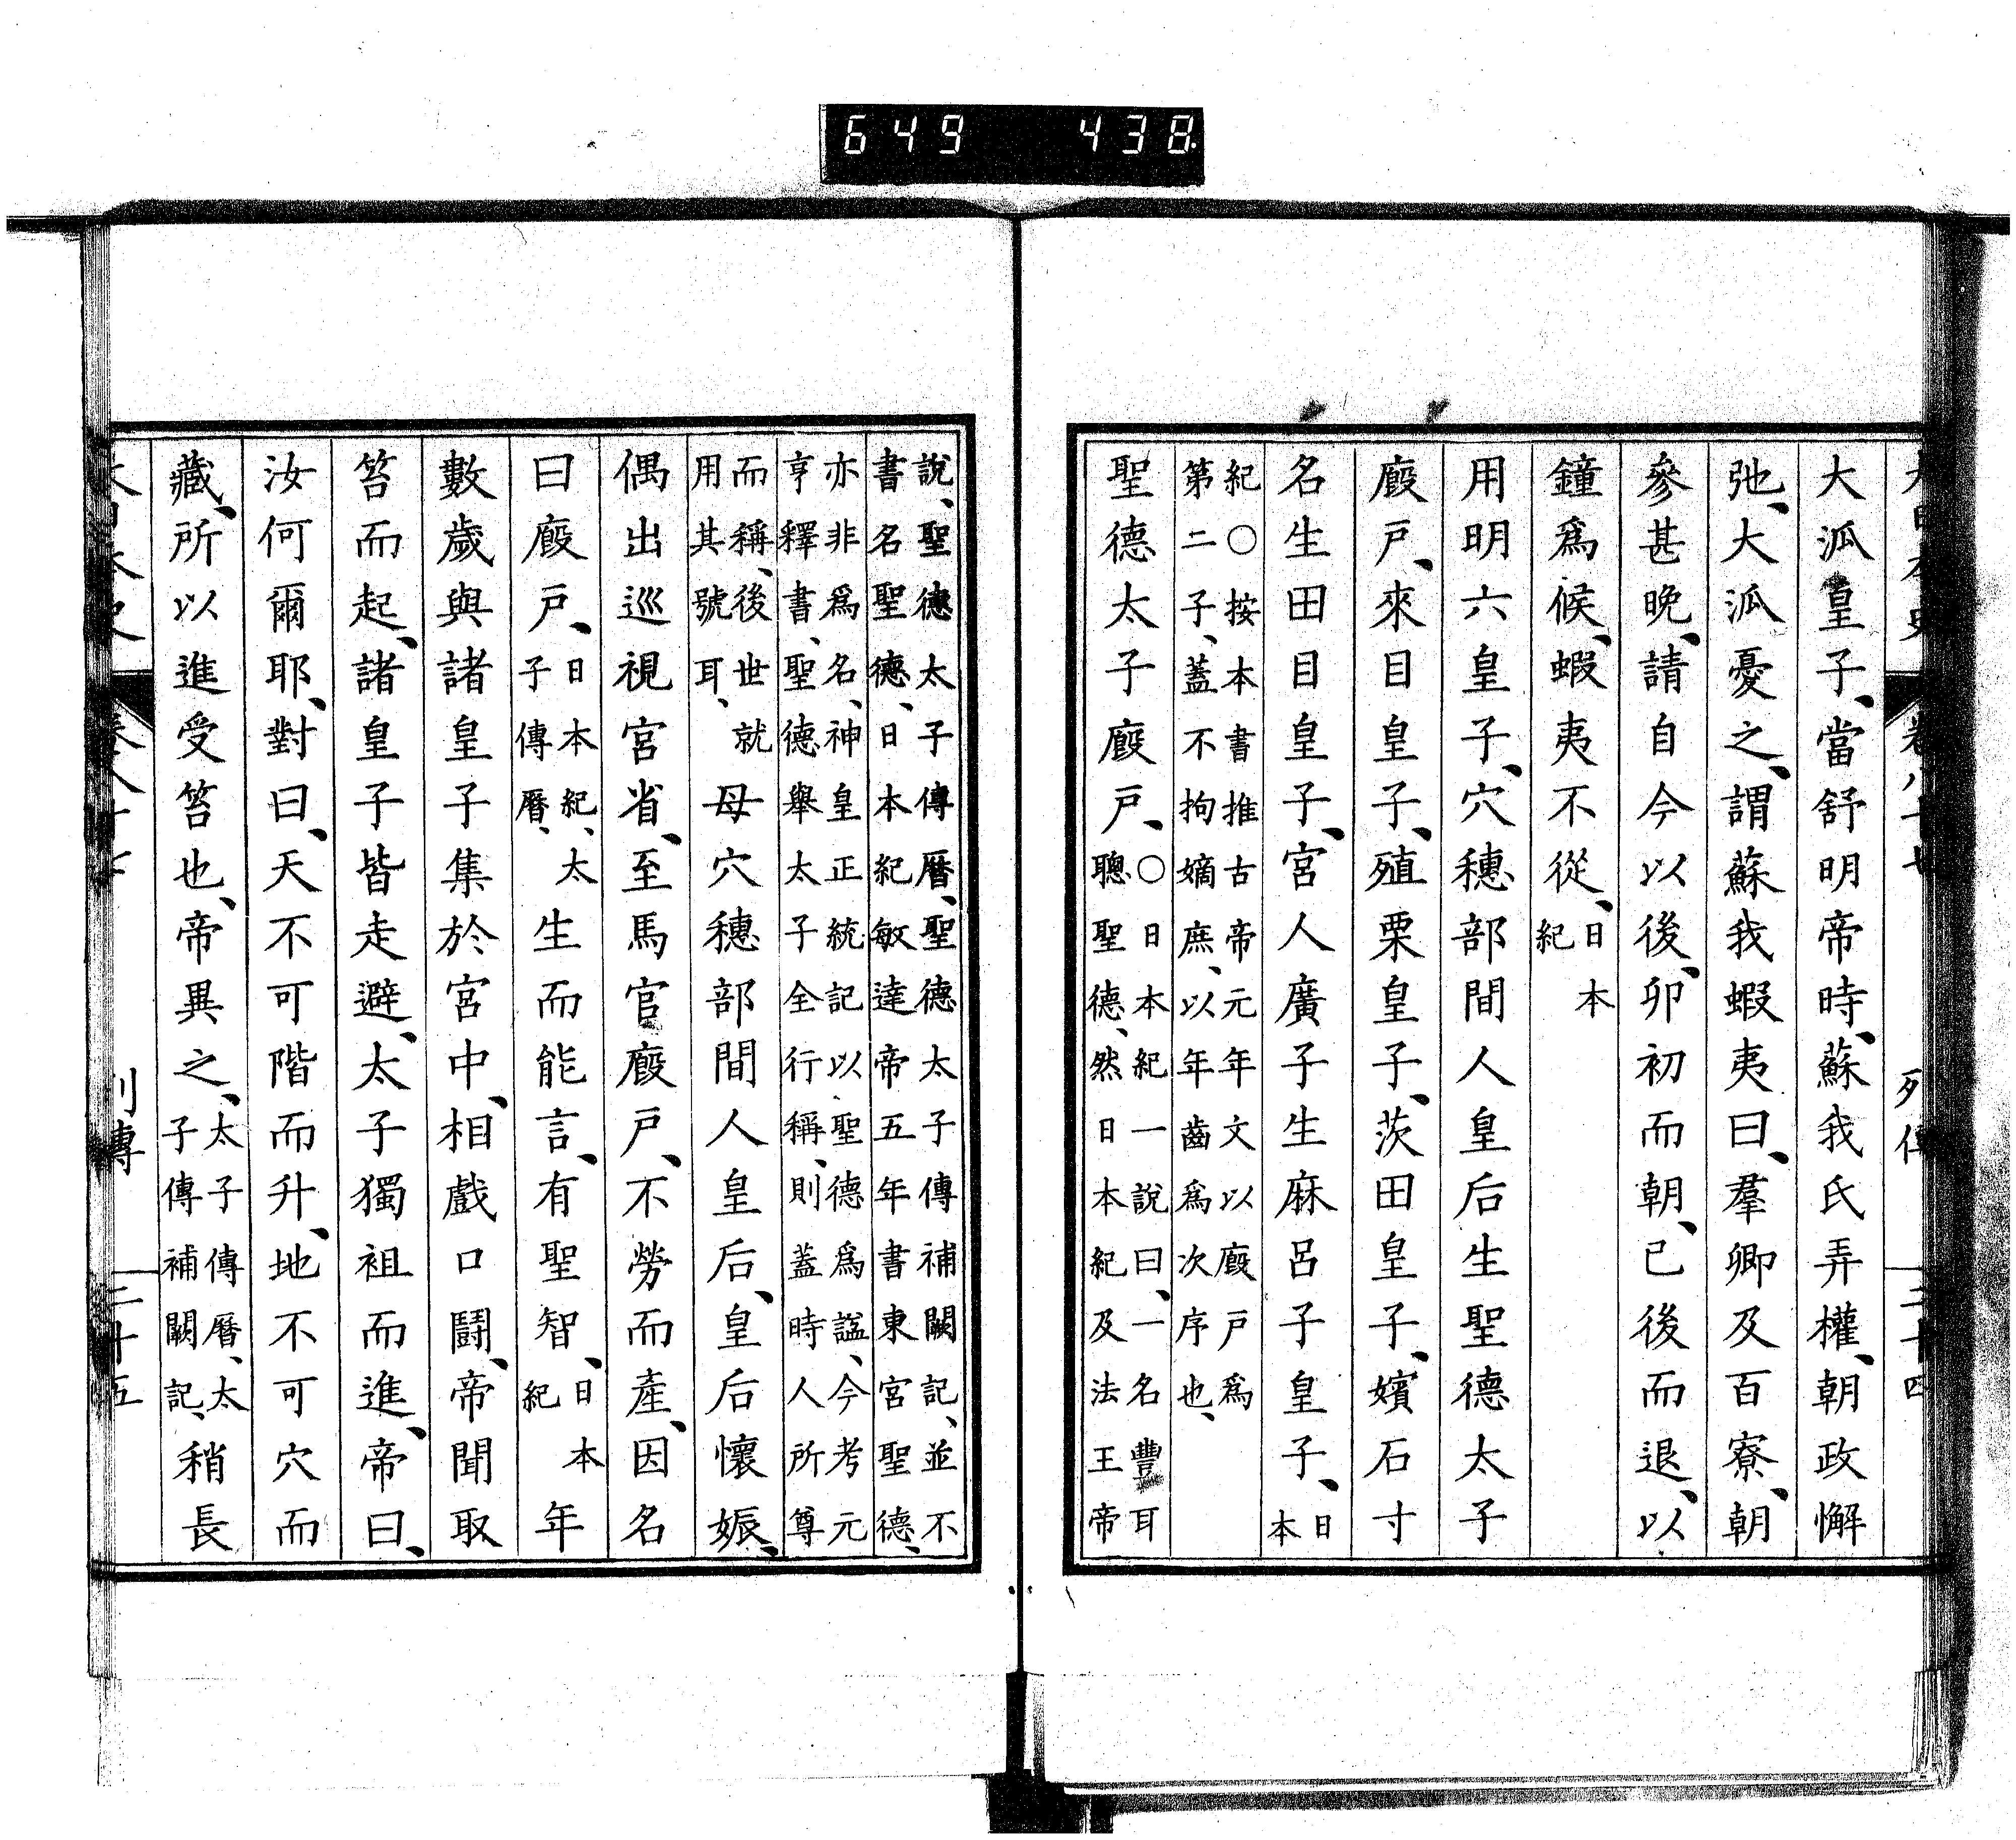 649 438
大日本史 卷八十七 列傳 二十四
大派皇子、當舒明帝時、蘇我氏弄權、朝政懈
弛、大派憂之、謂蘇我蝦夷曰、羣卿及百寮、朝
參甚晩、請自今以後、卯初而朝、已後而退、以
鐘爲候、蝦夷不從、日本
紀
用明六皇子、穴穗部間人皇后生聖德太子
廐戸、來目皇子、殖栗皇子、茨田皇子、嬪石寸
名生田目皇子、宮人廣子生麻呂子皇子、日
本
紀○按本書推古帝元年文以廐戸爲
第二子、蓋不拘嫡庶、以年齒爲次序也、
聖德太子廐戸、○日本紀一說曰、一名豐耳
聰聖德、然日本紀及法王帝
說、聖德太子傳曆、聖德太子傳補闕記、並不
書名聖德、日本紀敏達帝五年書東宮聖德、
亦非爲名、神皇正統記以聖德爲諡、今考元
亨釋書、聖德舉太子全行稱、則蓋時人所尊
而稱、後世就
用其號耳、母穴穗部間人皇后、皇后懷娠、
偶出巡視宮省、至馬官廐戸、不勞而產、因名
曰廐戸、日本紀、太
子傳曆、生而能言、有聖智、日本
紀年
數歲與諸皇子集於宮中、相戲口鬪、帝聞取
笞而起、諸皇子皆走避、太子獨袒而進、帝曰、
汝何爾耶、對曰、天不可階而升、地不可穴而
藏、所以進受笞也、帝異之、太子傳曆、太
子傳補闕記、稍長
大日本史 卷八十七 列傳 二十五